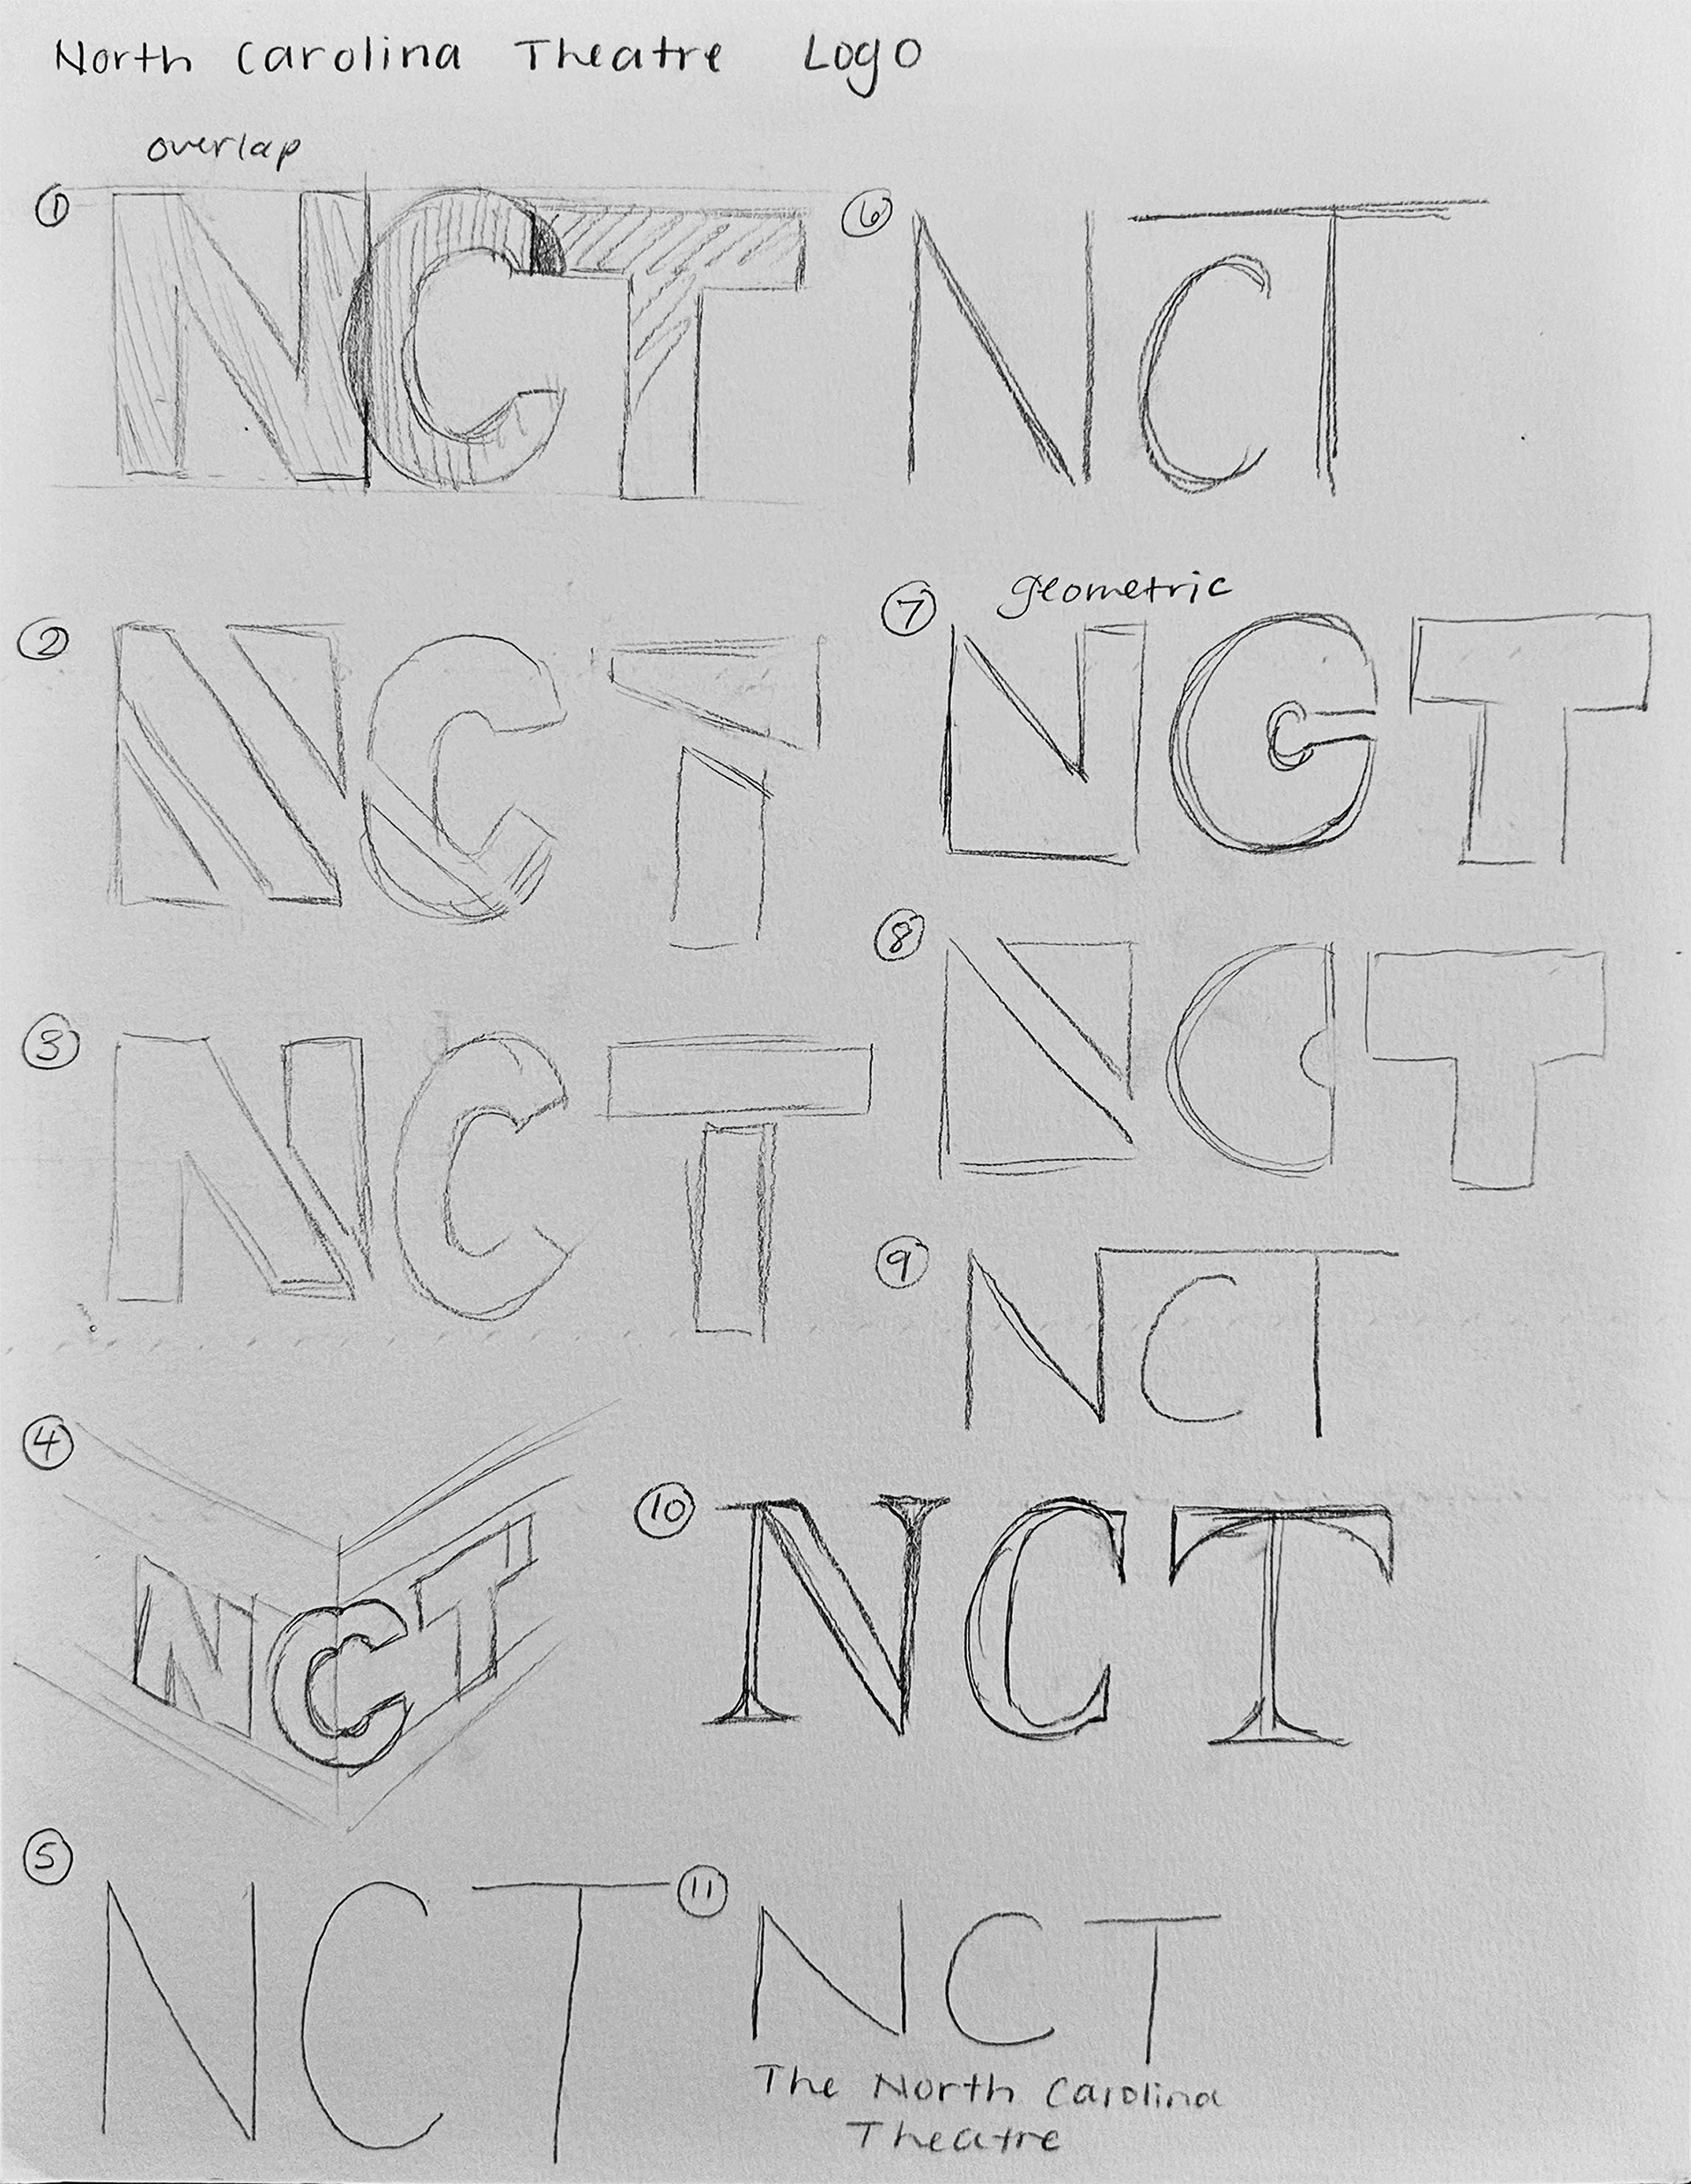 North Carolina Theatre Logo
overlap
1
NCT
2
NCT
3
NCT
4
NCT
5
NCT
6
NCT
geometric
7
NCT
8
NCT
9
NCT
10
NCT
11
NCT
The North Carolina
Theatre